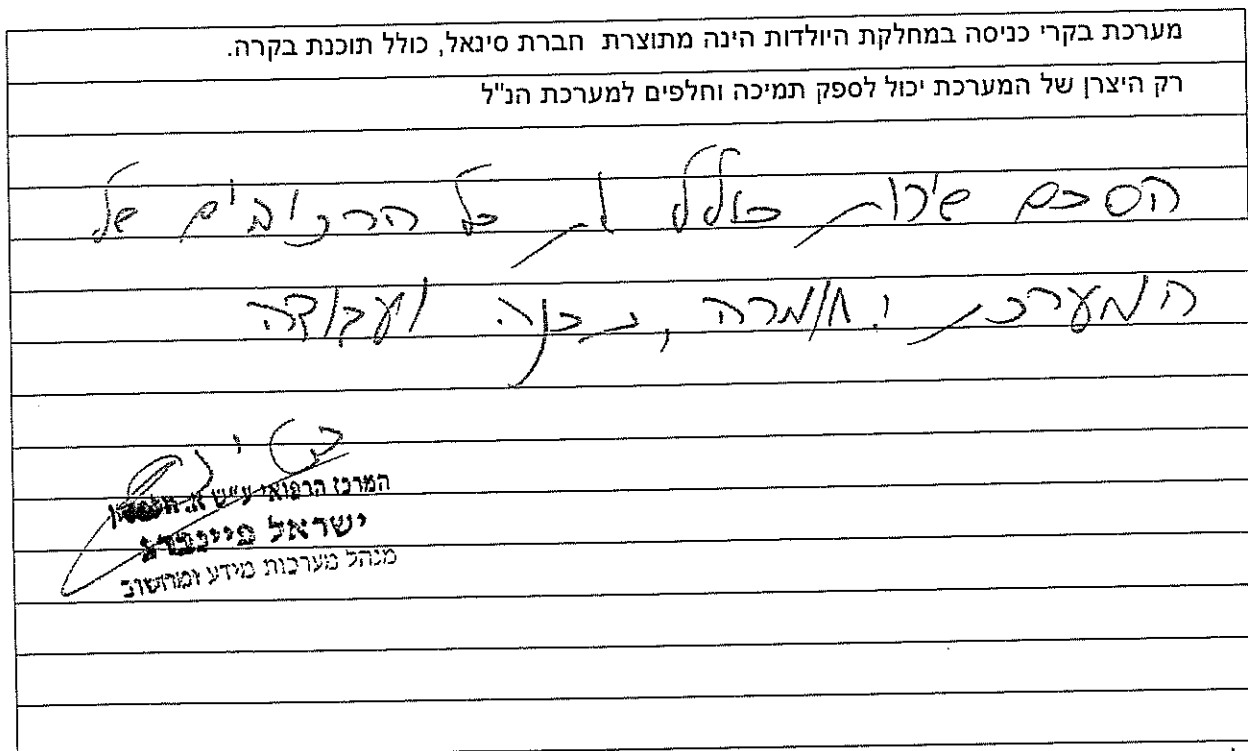 מערכת בקרי כניסה במחלקת היולדות הינה מתוצרת חברת סינאל, כולל תוכנת בקרה.
רק היצרן של המערכת יכול לספק תמיכה וחלפים למערכת הנ"ל
הסכם שירות כולל את כל הרכיבים של
המערכת : חומרה, תוכנה ועבודה
המרכז הרפואי ע"ש א.
ישראל פיינברג
מנהל מערכות מידע ומחשוב